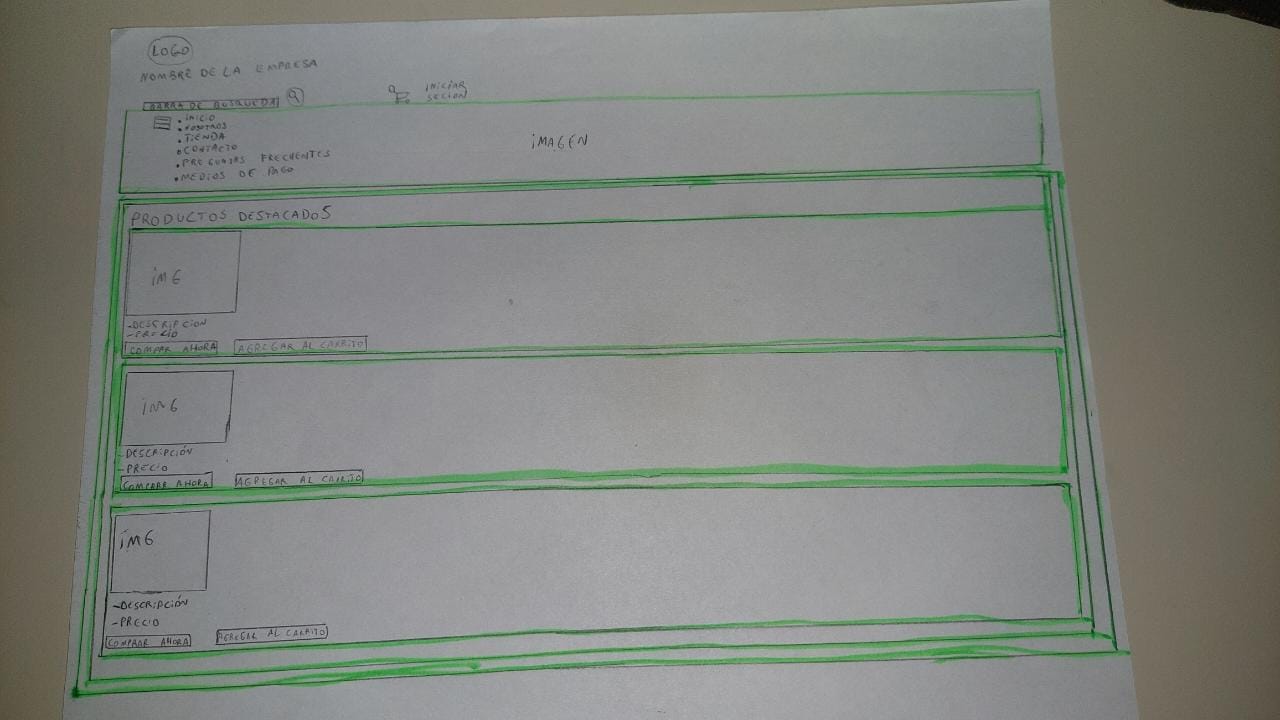 LOGO
NOMBRE DE LA EMPRESA
BARRA DE BUSQUEDA
INICIAR
SECION
• INICIO
• NOSOTROS
• TIENDA
• CONTACTO
• PREGUNTAS FRECUENTES
• MEDIOS DE PAGO
IMAGEN
PRODUCTOS DESTACADOS
IMG
-DESCRIPCION
-PRECIO
COMPAR AHORA AGREGAR AL CARRITO
IMG
-DESCRIPCIÓN
-PRECIO
COMPRAR AHORA AGREGAR AL CARRITO
IMG
-DESCRIPCIÓN
-PRECIO
COMPRAR AHORA AGREGAR AL CARRITO